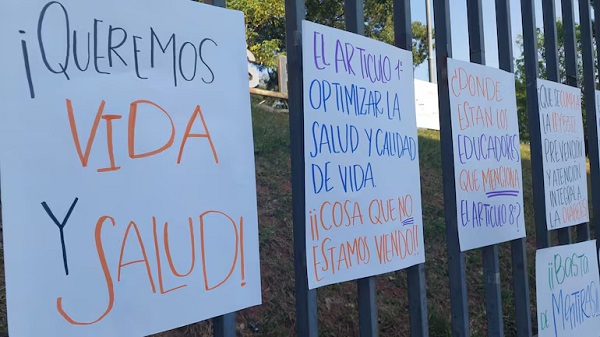 ¡Queremos
VIDA
Y
SALUD!
EL ARTICULO 1:
OPTIMIZAR LA
SALUD Y CALIDAD
DE VIDA
¡¡COSA QUE NO
ESTAMOS VIENDO!!
¿DONDE
ESTAN LOS
EDUCADORES
QUE MENCIONA
EL ARTICULO 8?
QUE SE CUMPLA
PREVENCIÓN
Y ATENCIÓN
INTEGRAL A
LA
¡¡BASTA
DE MENTIRAS!!